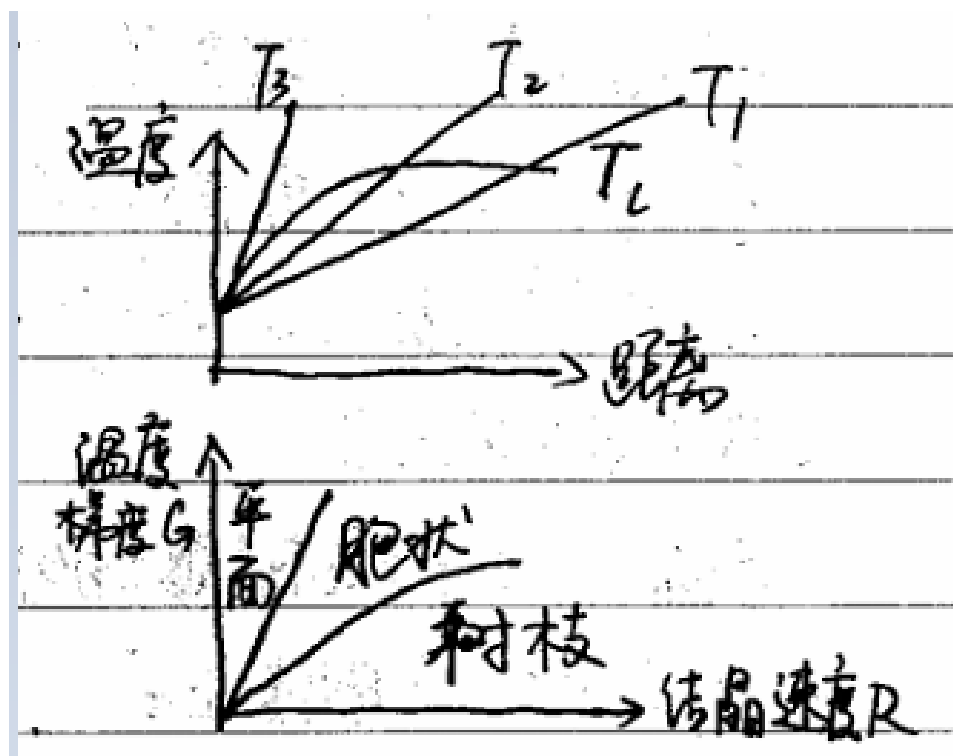 T3 T2 T1
温度
TL
距离
温度
梯度G
平面
胞状
树枝
结晶速度R